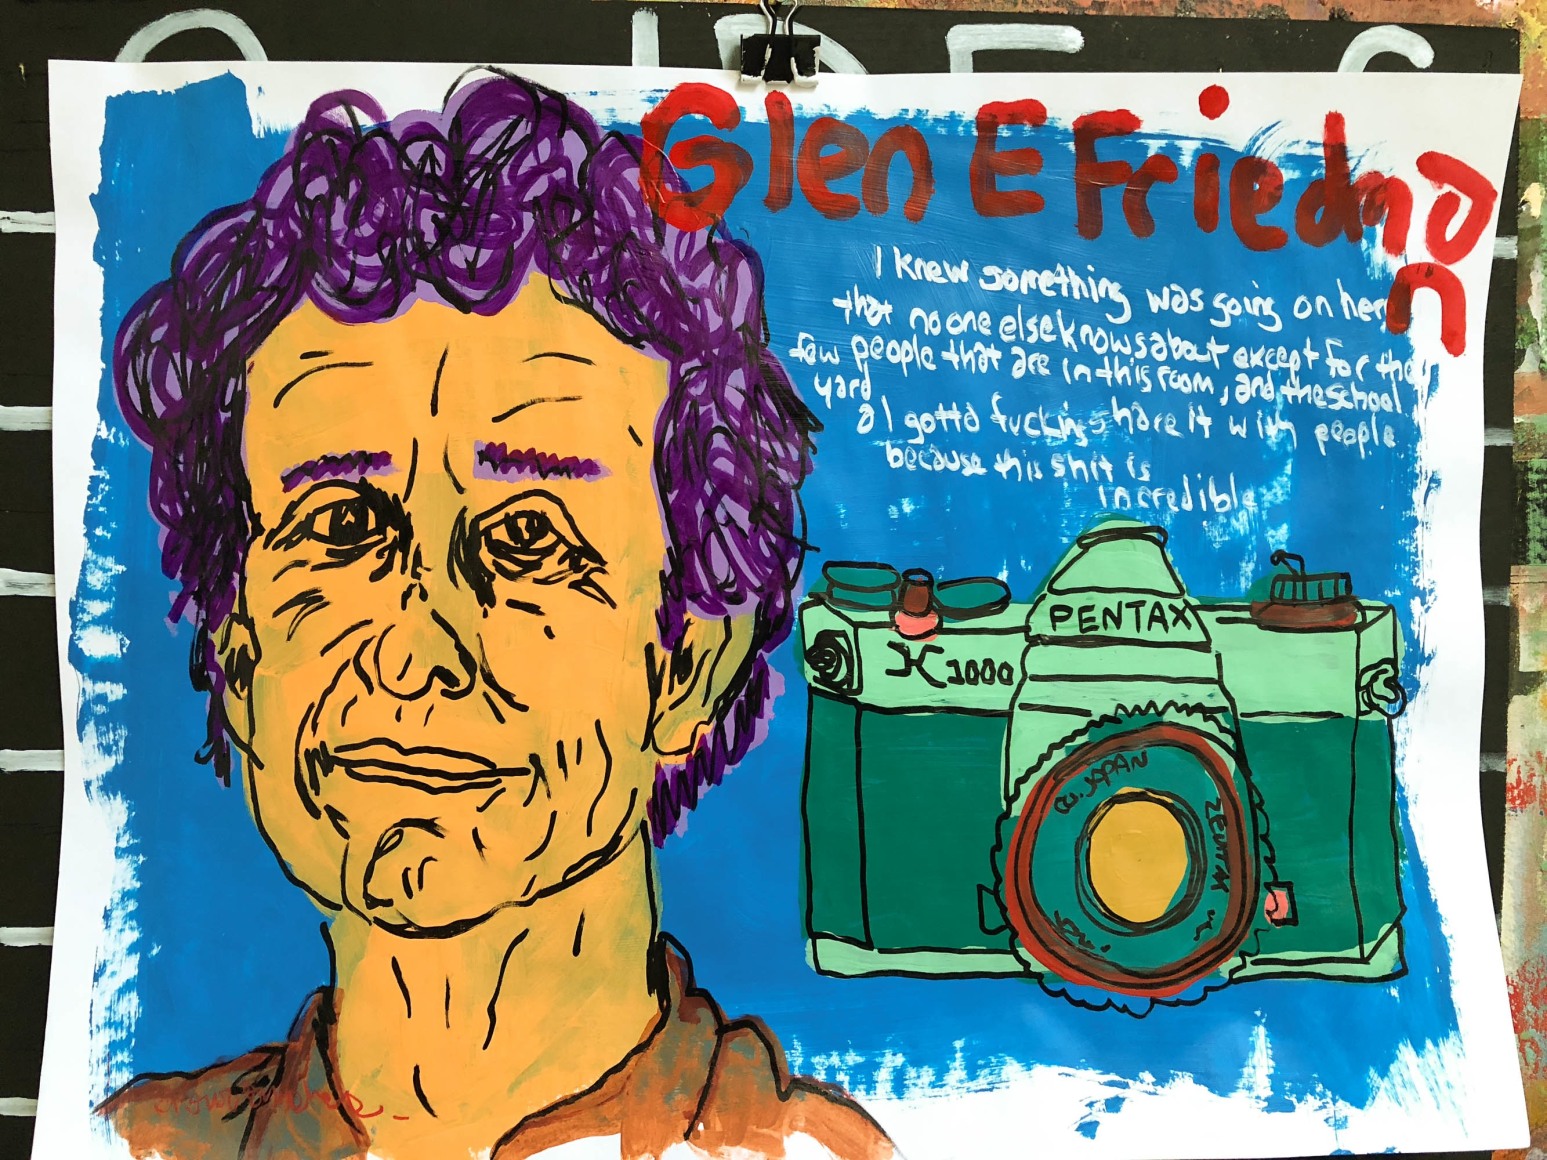 Glen E Friedman
I knew something was going on her
that no one else knows about except for the
few people that are in this room, and the school
yard
a I gotta fucking share it with people
because this shit is
incredible
PENTAX
K1000
CO. JAPAN